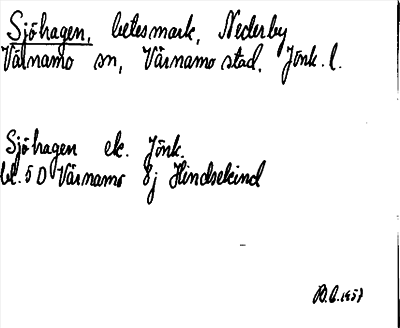 Sjöhagen, betesmark, Nederby
Värnamo sn, Värnamo stad, Jönk. l.
Sjöhagen ek. Jönk.
bl. 5 D Värnamo 8j Hindsekind
1957